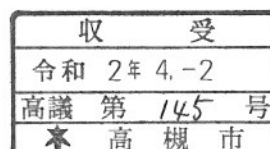 収受
令和 2年 4.-2
高議 第 145 号
高槻市